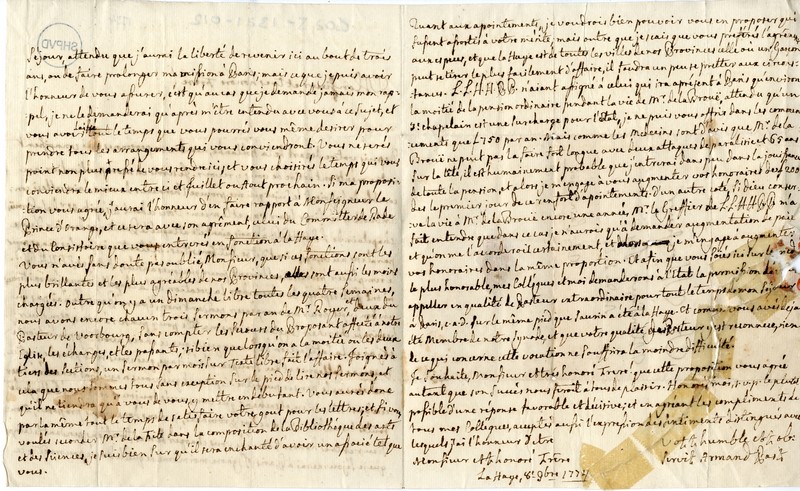 Sejour, attendu que j'aurai la liberté de revenir ici au bout de trois
ans, ou de faire prolonger ma mission à Paris; mais ce que je puis avoir
l'honneur de vous assurer, c'est qu'au cas que je demande jamais mon rap-
pel, je ne le demanderai qu'après m'être entendu avec vous à ce sujet, et
vous avoir laissé tout le temps que vous pourrés vous même desirer pour
prendre tous les arrangements qui vous conviendront. Vous ne serés
point non plus pressé de vous rendre ici; et vous choisirés le temps qui vous
conviendra le mieux entre ici et juillet ou Aout prochain. Si ma proposi-
tion vous agrée, j'aurai l'honneur d'en faire rapport à Monseigneur le
Prince d'Orange, et ce sera avec son agrément, celui du Committer de Rade
et du Consistoire que vous entrerés en fonction à la Haye.
Vous n'avés sans doute pas oublié, Monsieur, que si ces fonctions sont les
plus brillantes et les plus agréables de nos Provinces, elles sont aussi les moins
chargées. Outre qu'on y a un dimanche libre toutes les quatre semaines,
nous avons encore chacun trois sermons par an de Mr. Royer, et deux du
Pasteur de Voorbourg, sans compter les secours du Proposant affecté à notre
Eglise, les echanges, et les passants; si bien que lorsqu'on a la moitié ou les deux
tiers des sections, un sermon par mois sur Texte libre fait l'affaire. Joignés à
cela que nous sommes tous sans exception sur le pied de lire nos sermons, et
qu'il ne tiendra qu'à vous de vous y mettre en debutant. Vous aurés donc
par là même tout le temps de satisfaire votre gout pour les lettres; et si vous
voulés seconder Mr. de la Fite dans la composition de la Bibliotheque des arts
et des sciences, je suis bien sur qu'il sera enchanté d'avoir un associé tel que
vous.
Quant aux apointements, je voudrois bien pouvoir vous en proposer qui
fussent assortis à votre mérite, mais outre que je sais que vous préférés l'agréable
aux especes, et que la Haye est de toutes les villes de nos Provinces celle où un Garçon
peut se tirer le plus facilement d'affaire, il faudra un peu se prêter aux circons-
tances. L.L.H.H.P.P. n'aiant assigné à celui qui ira aprésent à Paris qu'environ
la moitié de la pension ordinaire pendant la vie de Mr. de la Broüe, attendu qu'un
2d. chapelain est une surcharge pour l'Etat, je ne puis vous offrir dans les commen-
cements que f 750 par an. Mais comme les Medecins sont d'avis que Mr. de la
Broüe ne peut pas la faire fort longue avec deux attaques de paralisie et 65 ans
sur la tête, il est humainement probable que j'entrerai dans peu dans la jouissance
de toute la pension, et alors je m'engage à vous augmenter vos honoraires de f 200
des le premier jour de ce renfort d'apointements. D'un autre coté, si Dieu conser-
ve la vie à Mr. de la Broüe encore une année, Mr. le Greffier de L.L.H.H.P.P. m'a
fait entendre que dans ce cas je n'aurois qu'à demander augmentation de paie
et qu'on me l'accorderoit certainement, et je m'engage à augmenter
vos honoraires dans la même proportion. Et afin que vous soiés ici sur le pied
le plus honorable, mes Collegues et moi demanderons à l'Etat la permission de vous
appeller en qualité de Pasteur extraordinaire pour tout le temps de mon sejour
à Paris, c.a.d. sur le même pied que Saurin a été à la Haye. Et comme vous avés déja
été Membre de notre Synode, et que votre qualité de Pasteur y est reconnue, rien
de ce qui concerne cette vocation ne souffrira la moindre difficulté.
Je souhaite, Monsieur et très honoré Frere, que cette proposition vous agrée
autant que son succés nous feroit à tous de plaisir. Honorés moi, s.v.p. le plutot
possible d'une réponse favorable et décisive; et en agréant les compliments de
tous mes Collegues, acceptés aussi l'expression des sentiments distingués avec
lesquels j'ai l'honneur d'être
Monsieur et très honoré Frere
Votre humble et ob.
servit. Armand Past.
La Haye, 8e. 9bre 1774
SHPVD